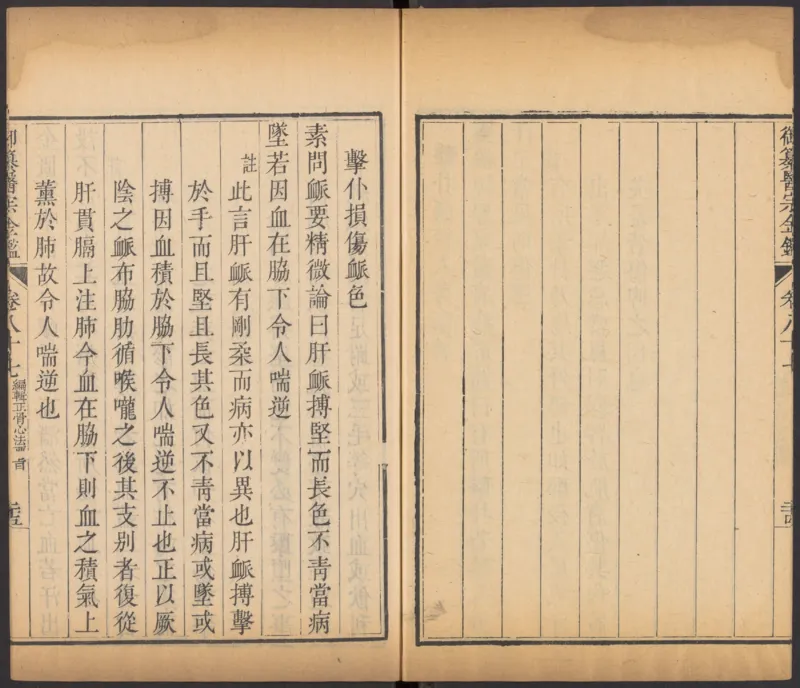 御纂醫宗金鑑
卷八十七
擊仆損傷䘑色
素問䘑要精微論曰肝䘑搏堅而長色不靑當病
墜若因血在脇下令人喘逆
註
此言肝䘑有剛柔而病亦以異也肝䘑搏擊
於手而且堅且長其色又不靑當病或墜或
搏因血積於脇下令人喘逆不止也正以厥
陰之䘑布脇肋循喉嚨之後其支别者復從
肝貫膈上注肺今血在脇下則血之積氣上
薰於肺故令人喘逆也
御纂醫宗金鑑
卷八十七
編輯正骨心法
首